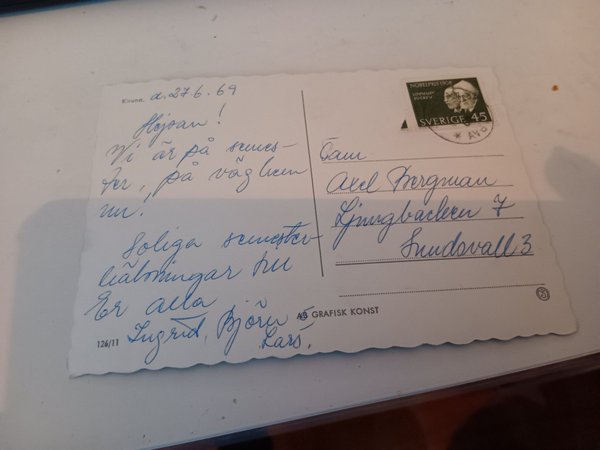 Kiruna. d. 27.6.69
Hejsan!
Vi är på semes-
ter, på väg hem
nu.
Soliga semester
hälsningar till
Er alla
Ingrid, Björn
Lars.
126/11
AB GRAFISK KONST
NOBELPRIS 1908
SVERIGE 45
Fam
Axel Bergman
Ljungbacken 7
Sundsvall 3